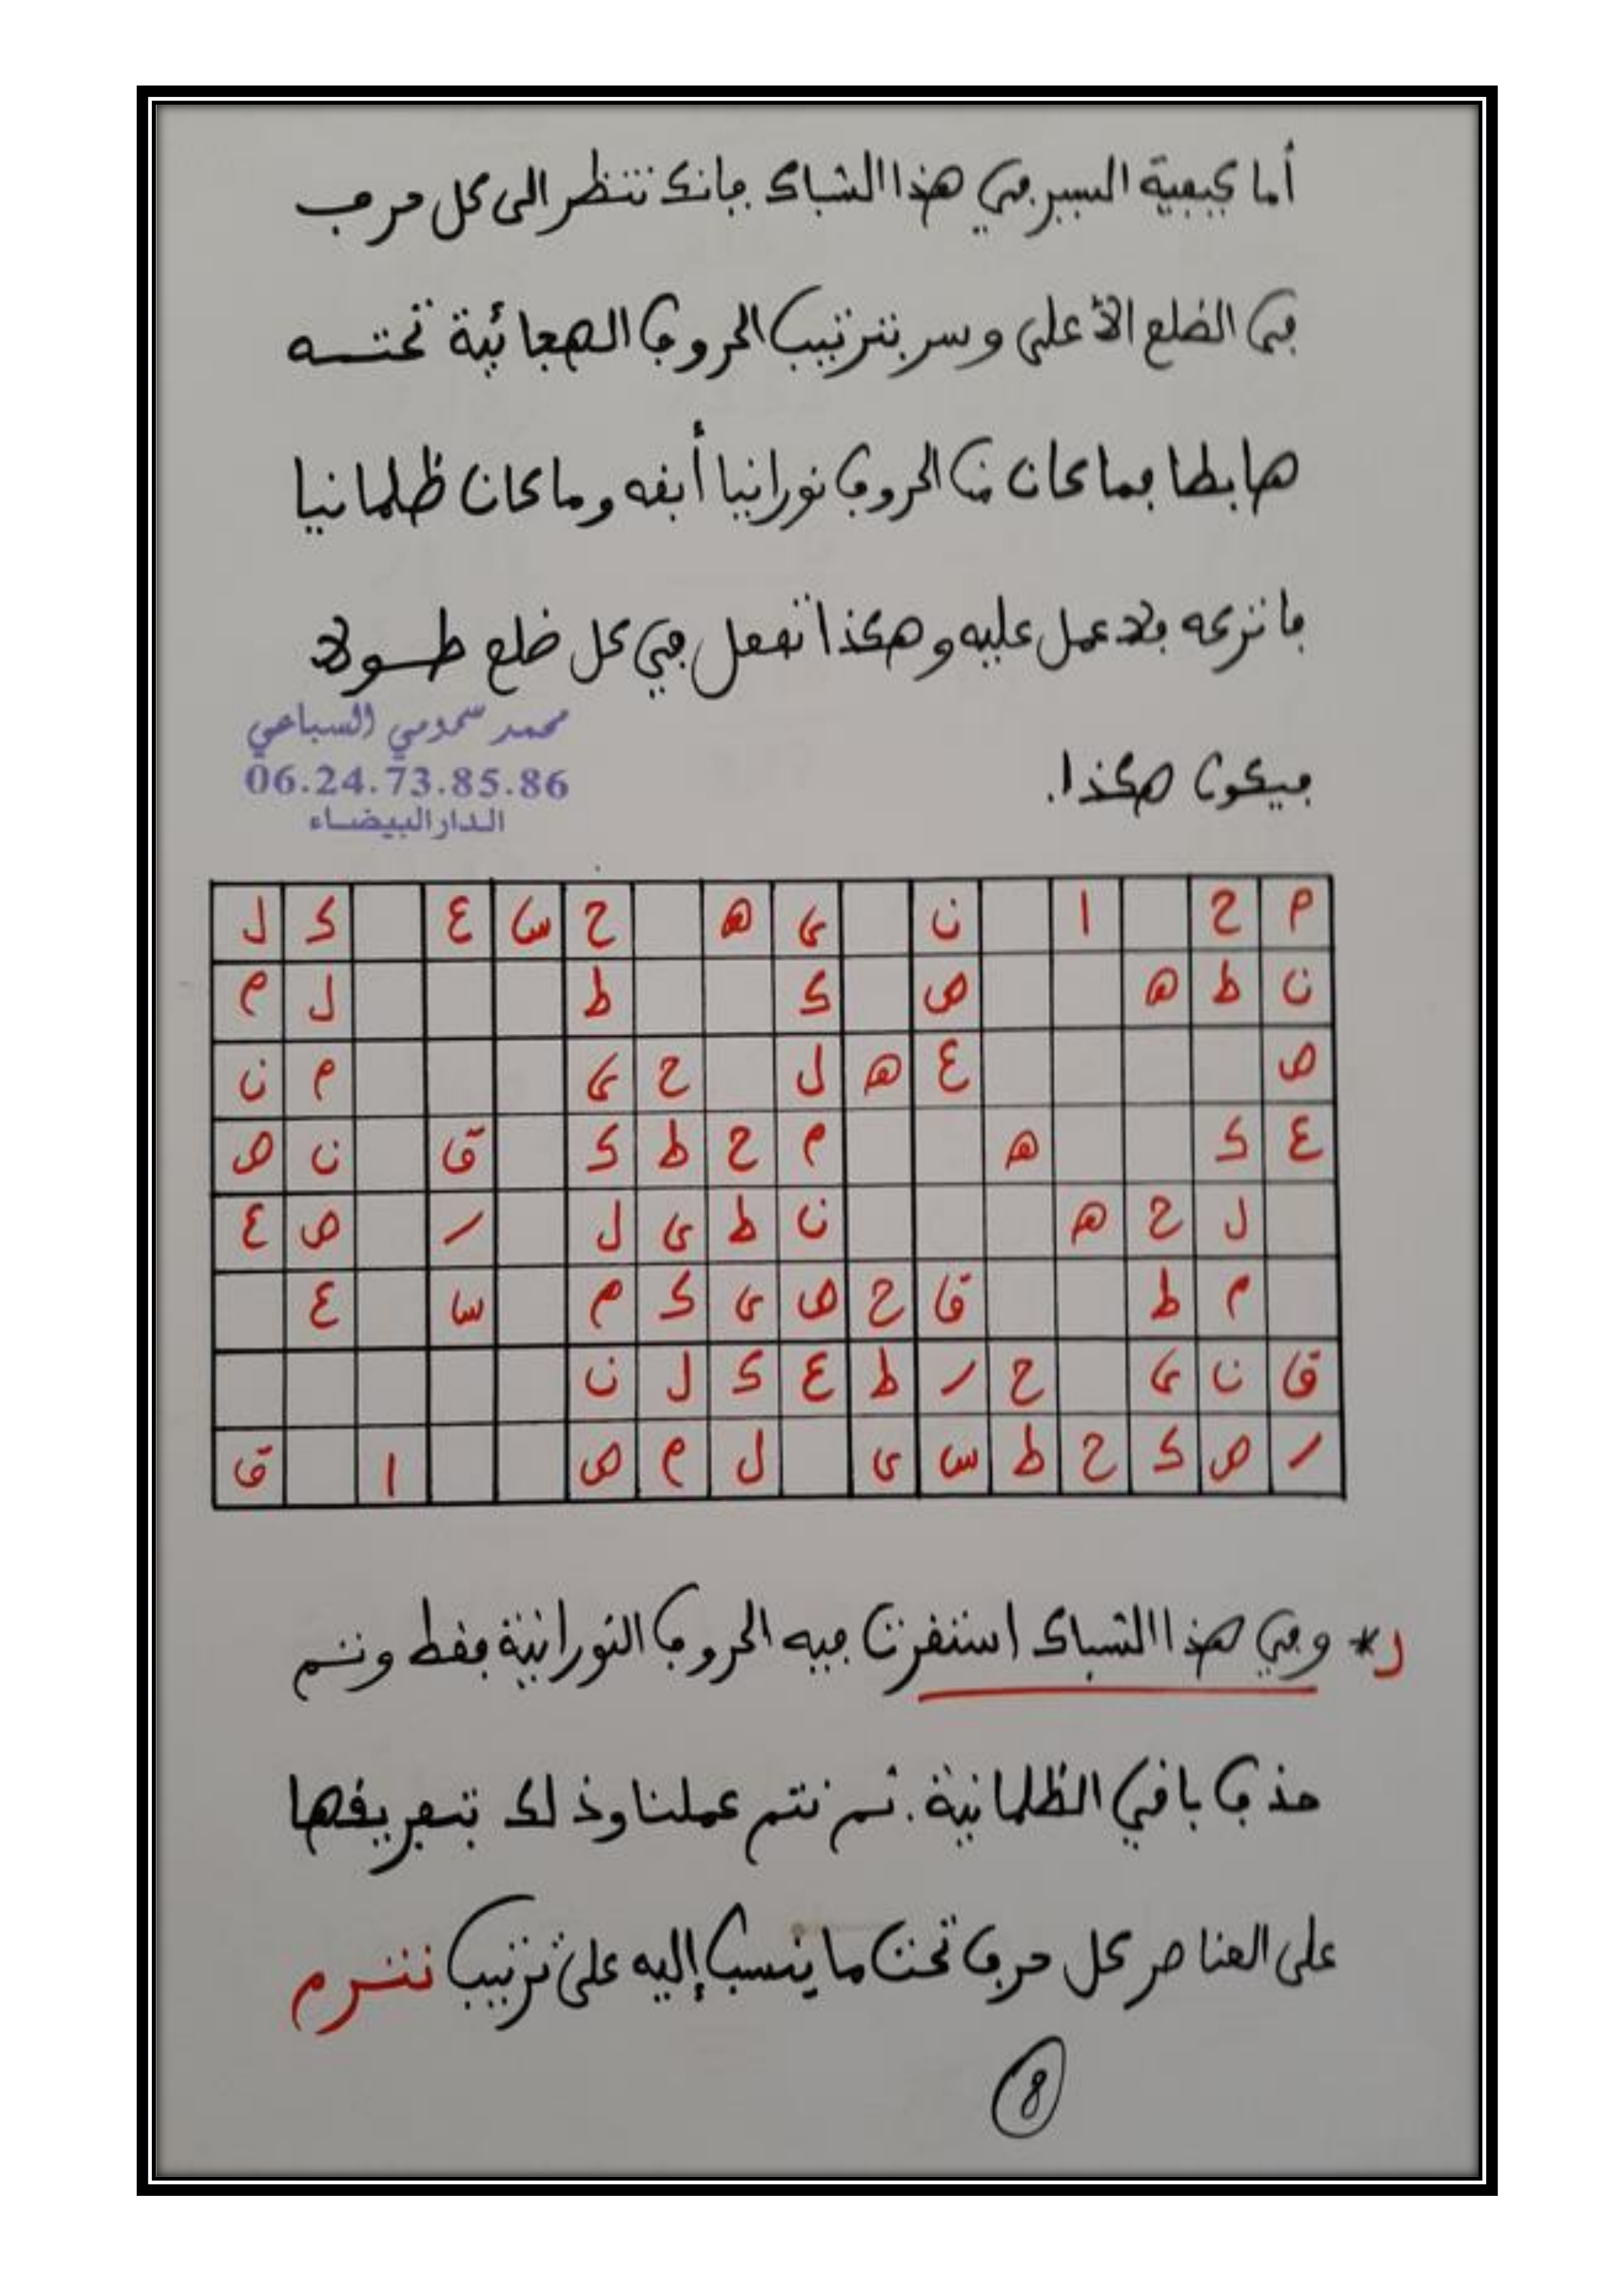 أما كيفية السير في هذا الشباك فإنك تنظر إلى كل حرف
في الضلع الأعلى وسر بترتيب الحروف الهجائية تحته
هابطا فما كان من الحروف نورانيا أبقه وما كان ظلمانيا
فاتركه فلا عمل عليه وهكذا تفعل في كل ضلع طولا
محمد سمومي السباعي
06.24.73.85.86
الدار البيضاء
فيكون هكذا.
م ح ا ن ى ه ح س ع ك ل
ن ط ه ص ك ط ل م
ص ع ه ل ح ى م ن
ع ك ه م ح ط ك ق ن ص
ل ح ه ن ط ى ل ر ص ع
م ط ق ح ص ى ك م س ع
ق ن ى ح ر ط ع ك ل ن
ر ص ك ح ط س ى ل م ص ا ق
* وفي هذا الشباك استقرت فيه الحروف النورانية فقط وتم
حذف باقي الظلمانية. ثم نتم عملنا وذلك بتفريقها
على العناصر كل حرف تحت ما ينسب إليه على ترتيب
8